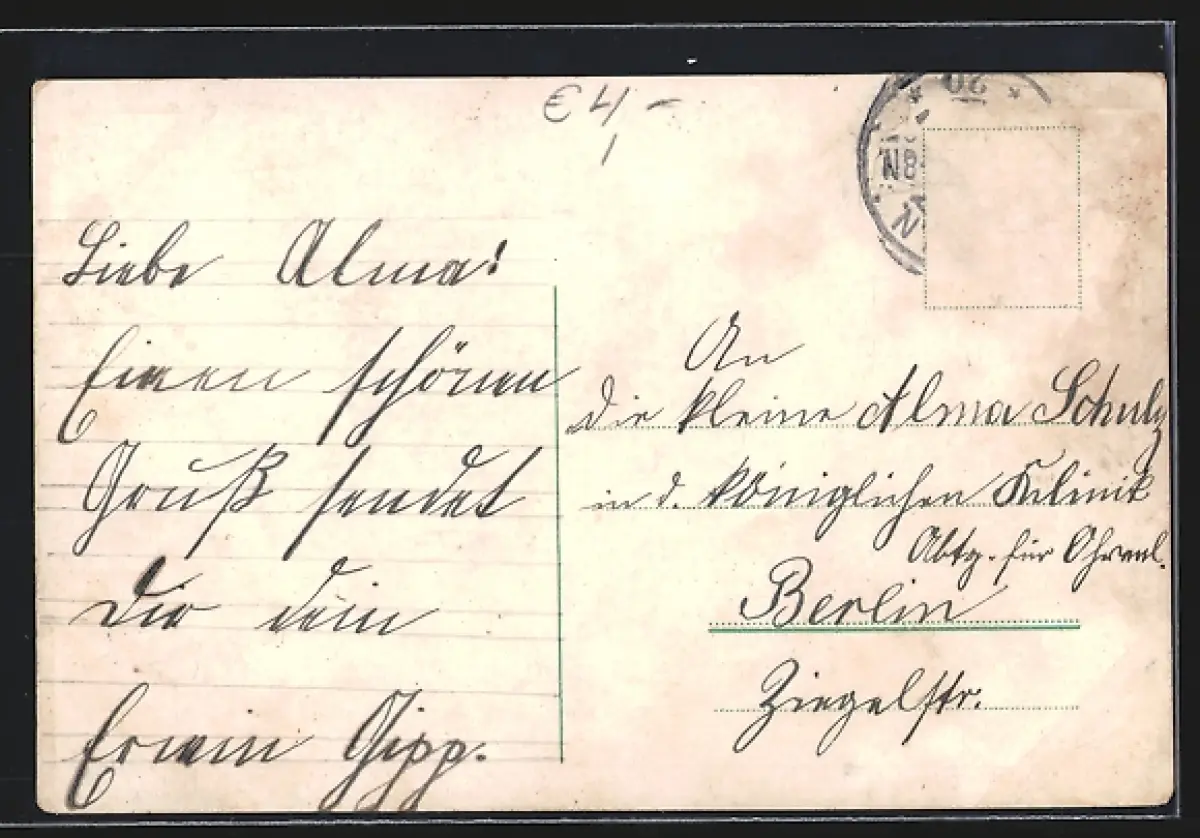 € 4,-
Liebe Alma!
Einen schönen
Gruß sendet
Dir dein
Erwin Gipp.
An
die kleine Alma Schulz
in d. königlichen Klinik
Abtg. für Ohrenl.
Berlin
Ziegelstr.